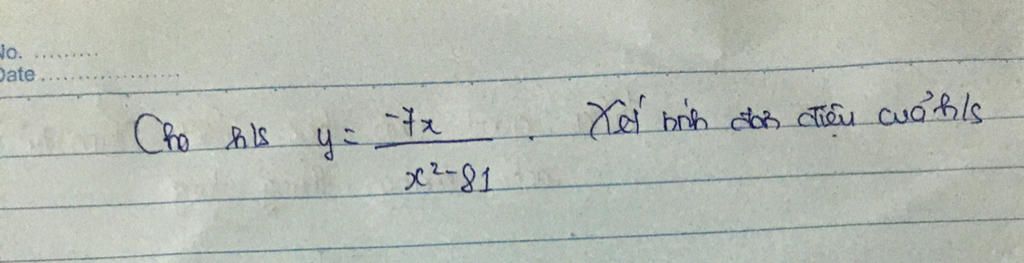 No. ..........
Date .....................
Cho h/s y = -7x / x²-81 . Xét tính đơn điệu của h/s